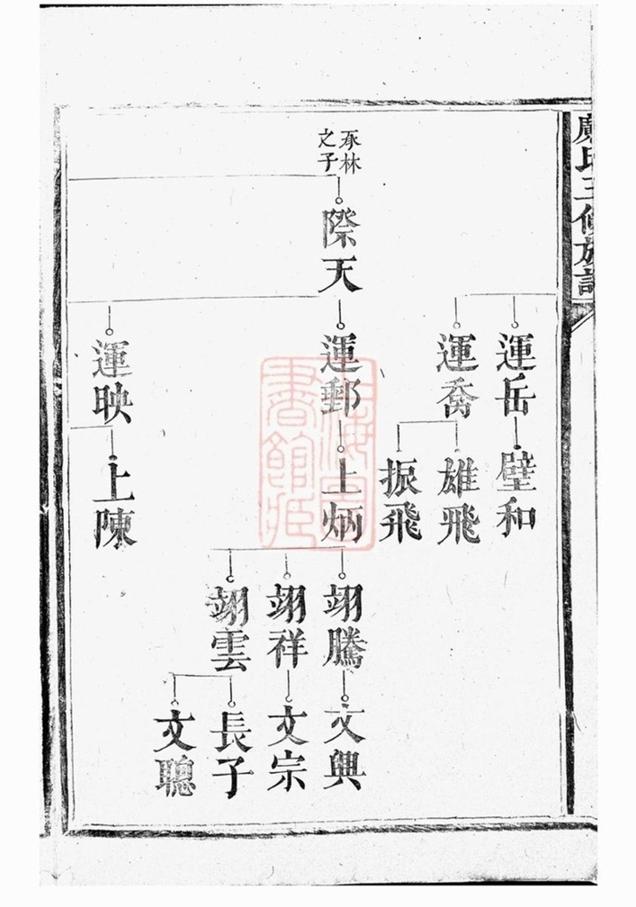 氏三修族譜
運岳
壁和
運喬
雄飛
振飛
承林
之子
際天
運郵
上炳
翊騰
文興
翊祥
文宗
翊雲
長子
文聰
運映
上陳
上海圖
書館藏